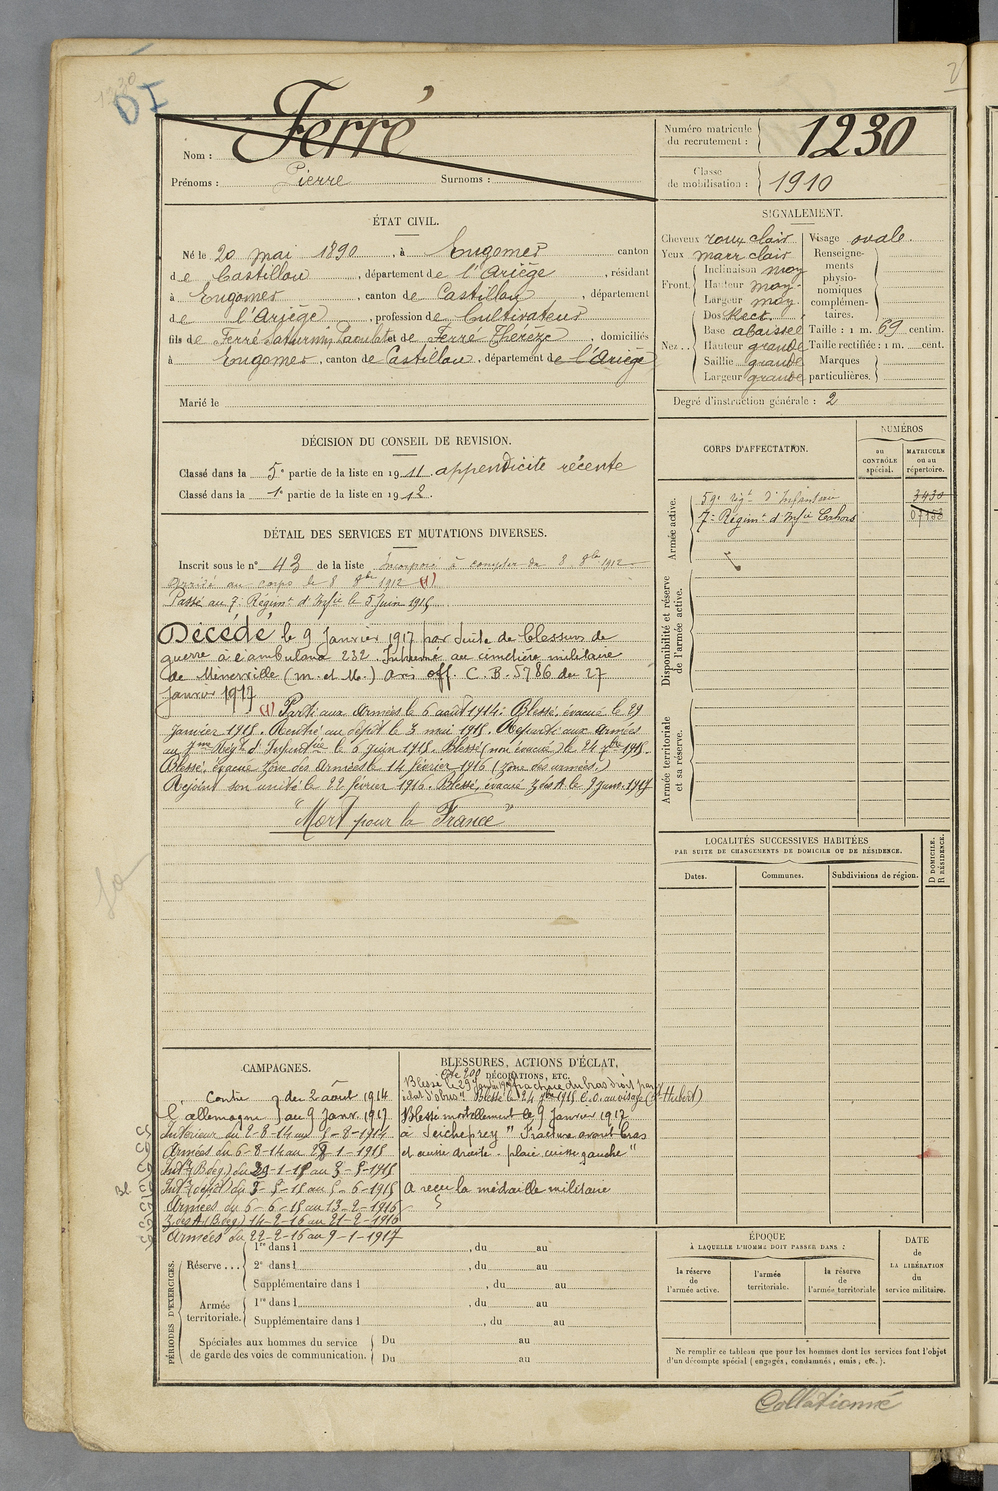 DI
Nom : Ferré
Prénoms : Pierre Surnoms :
Numéro matricule du recrutement : 1230
Classe de mobilisation : 1910
ÉTAT CIVIL.
Né le 20 mai 1890, à Engomer canton
de Castillon, département de l'Ariège, résidant
à Engomer, canton de Castillon, département
de l'Ariège, profession de Cultivateur
fils de Ferré Saturnin Paul et de Ferré Thérèze, domiciliés
à Engomer, canton de Castillon, département de l'Ariège
Marié le
SIGNALEMENT.
Cheveux roux clair
Yeux marr clair
Front. Inclinaison moy
Hauteur moy.
Largeur moy.
Nez.. Dos Rect.
Base abaissée
Hauteur grande
Saillie grande
Largeur grande
Visage ovale.
Renseignements physionomiques complémentaires.
Taille : 1 m. 69 centim.
Taille rectifiée : 1 m. cent.
Marques particulières.
Degré d'instruction générale : 2
DÉCISION DU CONSEIL DE REVISION.
Classé dans la 5e partie de la liste en 1911. appendicite récente
Classé dans la 1e partie de la liste en 1912.
DÉTAIL DES SERVICES ET MUTATIONS DIVERSES.
Inscrit sous le n° 43 de la liste Incorporé à compter du 8 8bre 1912
arrivé au corps le 8 8bre 1912 (1)
Passé au 7e Régimt d'Infie le 5 Juin 1915
Décédé le 9 Janvier 1917 par suite de blessures de
guerre à l'ambulance 232. Inhumé au cimetière militaire
de Minorville (M. et M.) avis off. C.B. 5786 du 27
Janvier 1917
(1) Parti aux Armées le 6 août 1914. Blessé, évacué le 29
janvier 1915. Rentré au dépôt le 3 mai 1915. Reparti aux armées
au 7me Régt d'Infanterie le 6 juin 1915. Blessé (non évacué) le 24 7bre 1915.
Blessé, évacué zône des Armées le 14 février 1916 (zône des armées.)
Rejoint son unité le 22 février 1916. Blessé, évacué z des A le 9 Janv. 1917
"Mort pour la France"
CORPS D'AFFECTATION.
NUMÉROS
au CONTRÔLE spécial.
MATRICULE ou au répertoire.
Armée active.
59e Régt d'Infanterie 3430
7e Régimt d'Infie Cahors 07158
Disponibilité et réserve de l'armée active.
Armée territoriale et sa réserve.
LOCALITÉS SUCCESSIVES HABITÉES
PAR SUITE DE CHANGEMENTS DE DOMICILE OU DE RÉSIDENCE.
Dates. Communes. Subdivisions de région.
D DOMICILE. R RÉSIDENCE.
CAMPAGNES.
Contre l'allemagne du 2 août 1914
au 9 Janv. 1917
Intérieur du 2-8-14 au 5-8-1914
Armées du 6-8-14 au 28-1-1915
Intr (Bles.) du 29-1-15 au 3-5-1915
Intr (dépôt) du 3-5-15 au 5-6-1915
Armées du 6-6-15 au 13-2-1916
Z des A (Bles) 14-2-16 au 21-2-1916
Armées du 22-2-16 au 9-1-1917
BLESSURES, ACTIONS D'ÉCLAT, DÉCORATIONS, ETC.
Blessé le 29 Janvier 1915 fracture du bras droit par
éclat d'obus. Blessé le 24 7bre 1915 E.O. au visage (St Hubert)
Blessé mortellement le 9 Janvier 1917
à Seicheprey "Fracture avant bras
et cuisse droite. plaie cuisse gauche"
A reçu la médaille militaire
PÉRIODES D'EXERCICES.
Réserve ... 1re dans l , du au
2e dans l , du au
Supplémentaire dans l , du au
Armée territoriale. 1re dans l , du au
Supplémentaire dans l , du au
Spéciales aux hommes du service de garde des voies de communication. Du au
Du au
ÉPOQUE
À LAQUELLE L'HOMME DOIT PASSER DANS :
la réserve de l'armée active.
l'armée territoriale.
la réserve de l'armée territoriale
DATE de LA LIBÉRATION du service militaire.
Ne remplir ce tableau que pour les hommes dont les services font l'objet
d'un décompte spécial (engagés, condamnés, omis, etc.).
Collationné